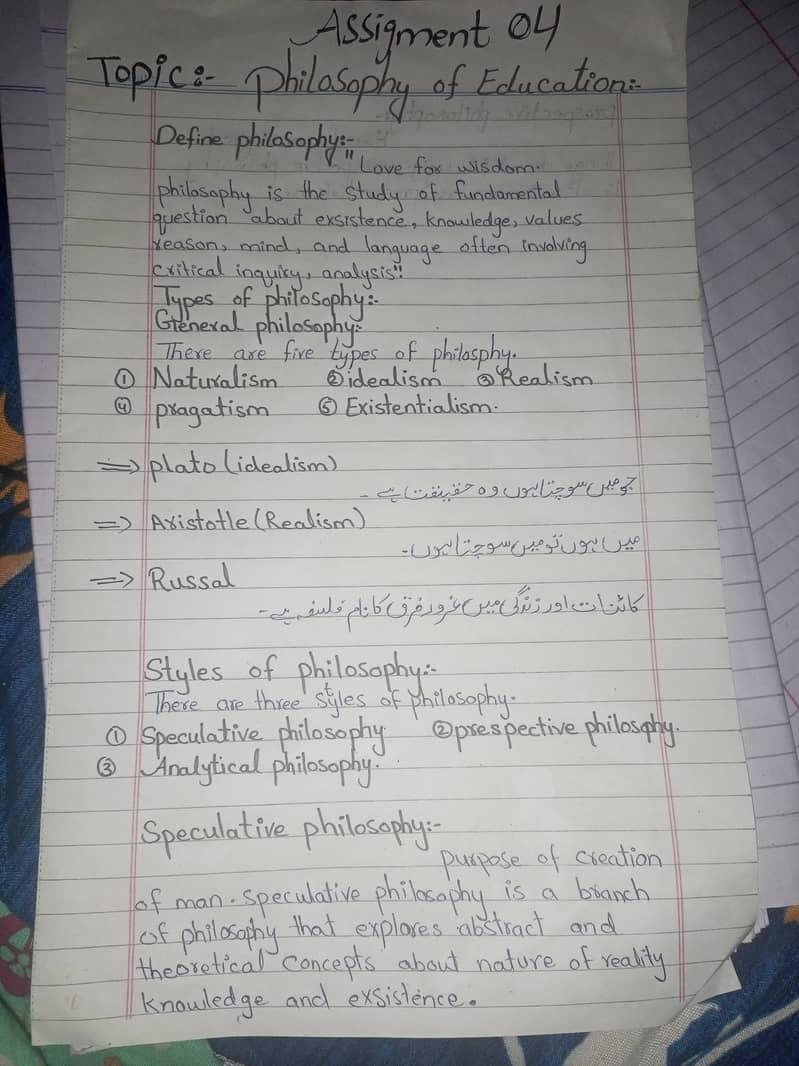 Assigment 04
Topic:- Philosophy of Education:-
Define philosophy:-
"Love for wisdom.
philosophy is the study of fundamental
question about exsistence, knowledge, values
reason, mind, and language often involving
critical inquiry, analysis".
Types of philosophy:-
General philosophy:-
There are five types of philosphy.
① Naturalism ② idealism ③ Realism
④ pragatism ⑤ Existentialism.
=> plato (idealism)
جو میں سوچتا ہوں وہ حقیقت ہے -
=> Aristotle (Realism)
میں ہوں تو میں سوچتا ہوں -
=> Russal
کائنات اور زندگی میں غرور فرق کا نام فلسفہ ہے -
Styles of philosophy:-
There are three styles of philosophy.
① Speculative philosophy ② prespective philosphy.
③ Analytical philosophy.
Speculative philosophy:-
purpose of creation
of man. speculative philosophy is a branch
of philosophy that explores abstract and
theoretical concepts about nature of reality
knowledge and exsistence.